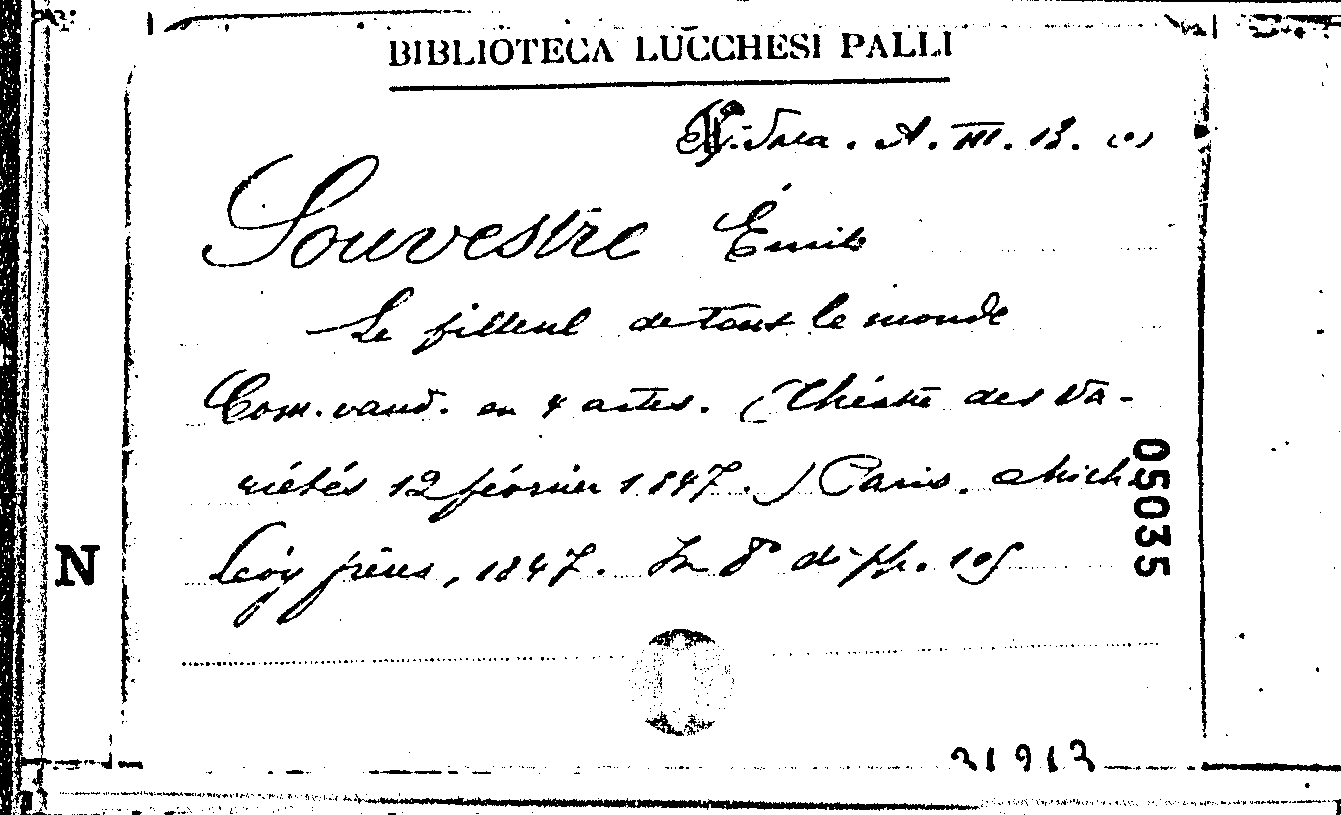 BIBLIOTECA LUCCHESI PALLI
A. III. 13. (1)
Souvestre Émile
Le filleul de tout le monde
Com. vaud. en 4 actes. (Théatre des Va-
riétés 12 février 1847.) Paris. Mich.
Lévy frères, 1847. In 8° di pp. 105
05035
N
21912